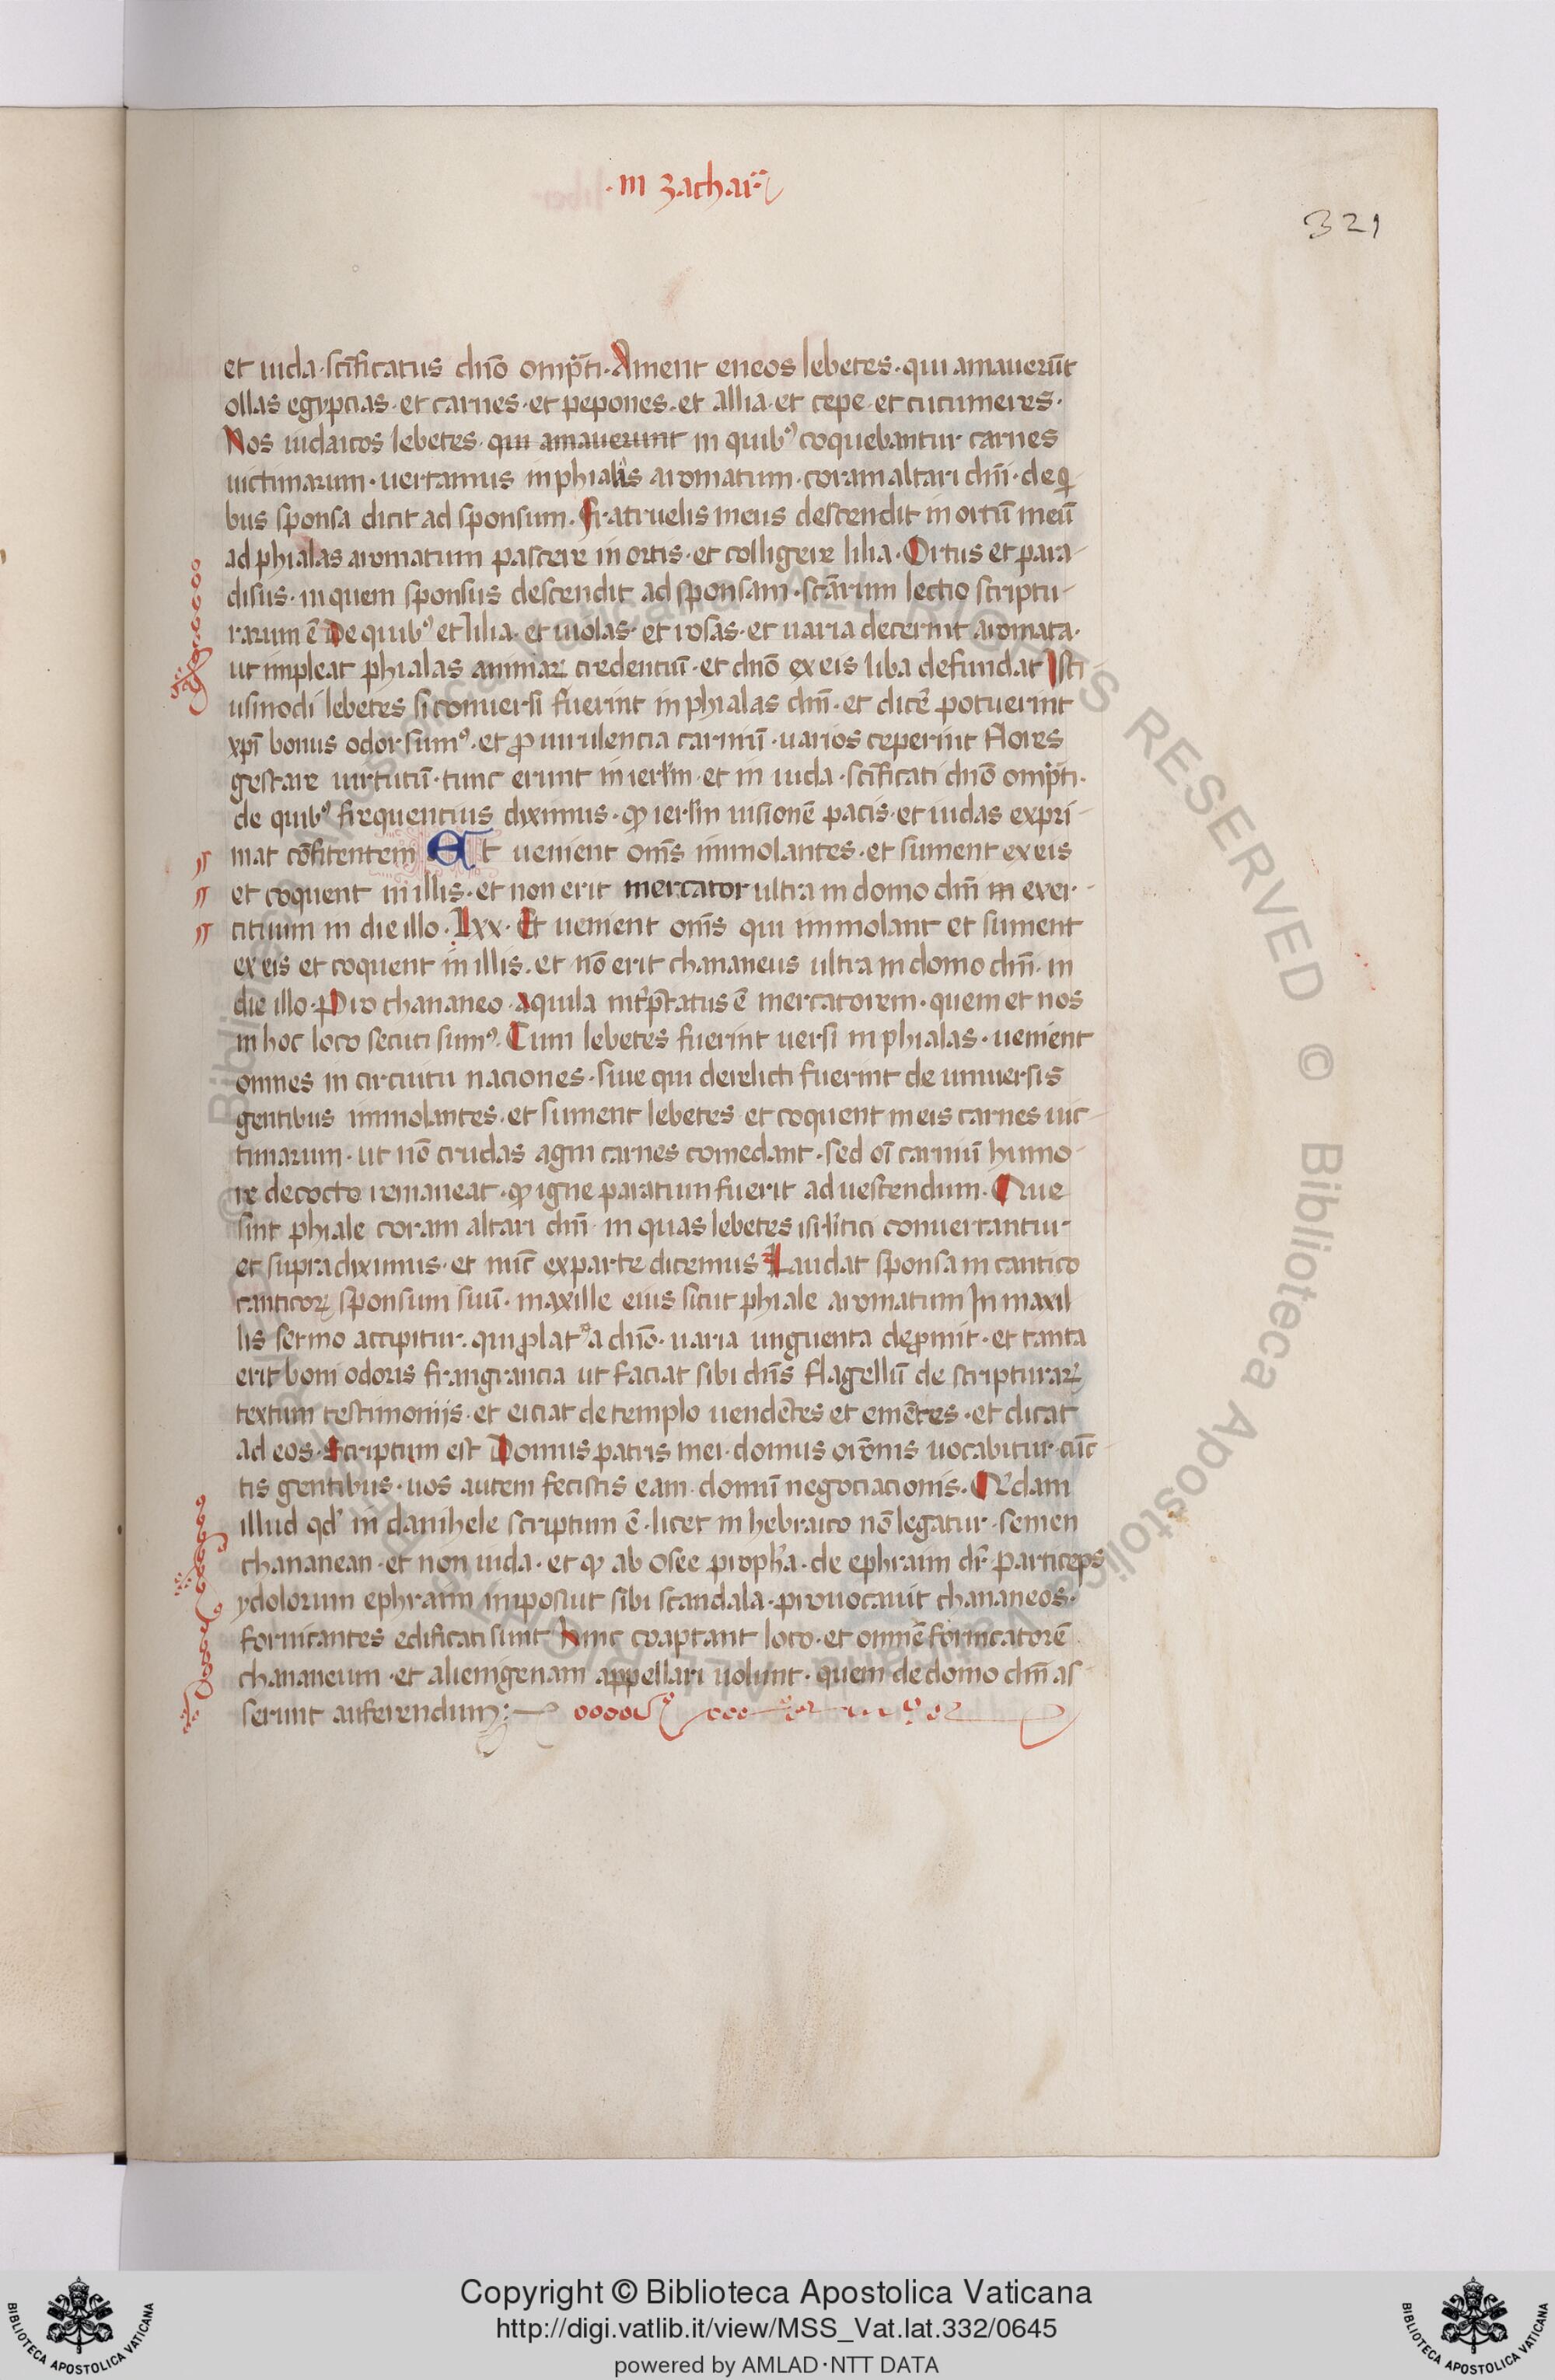 ·III zachar
321
et iuda·sc̄ificatus dn̄o omp̄ti·Ament eneos lebetes·qui amauerūt
ollas egyptias·et carnes·et pepones·et allia·et cepe·et cucumeres·
Nos iudaicos lebetes·qui amauerunt in quibꝰ coquebantur carnes
uictimarum·uertamus in phialis aromatum·coram altari dn̄i·de qi
bus sponsa dicit ad sponsum·Fratruelis meus descendit in ortū meū
ad phialas aromatum pascere in ortis·et colligere lilia·Ortus et para-
disus·in quem sponsus descendit ad sponsam·sc̄arum lectio scriptu-
rarum ē De quibꝰ et lilia·et uiolas·et rosas·et uaria decernit aromata·
ut impleat phialas animaꝝ credentiū·et dn̄o ex eis liba defundat Isti
usmodi lebetes si conuersi fuerint in phialas dn̄i·et dicē potuerint
xp̄i bonus odor sumꝰ·et ꝓ uirulencia carniū·uarios ceperint flores
gestare uirtutū·tunc erunt in ierl̄m·et in iuda·sc̄ificati dn̄o omp̄ti·
de quibꝰ frequentius diximus·ꝙ ierl̄m uisionē pacis·et iudas expri-
mat cōfitentem Et uenient om̄s immolantes·et sument ex eis
et coquent in illis·et non erit mercator ultra in domo dn̄i in exer-
cituum in die illo·Lxx·Et uenient om̄s qui immolant et sument
ex eis et coquent in illis·et nō erit chananeus ultra in domo dn̄i·in
die illo·Pro chananeo·aquila int̄p̄tatus ē mercatorem·quem et nos
in hoc loco secuti sumꝰ·Cum lebetes fuerint uersi in phialas·uenient
omnes in circuitu naciones·siue qui derelicti fuerint de uniuersis
gentibus immolantes·et sument lebetes et coquent in eis carnes uic-
timarum·ut nō crudas agni carnes comedant·sed oī carniū humo-
re decocto remaneat·ꝙ igne paratum fuerit ad uescendum·Que
sint phiale coram altari dn̄i in quas lebetes isrl̄itici conuertantur
et supra diximus·et nūc ex parte dicemus Laudat sponsa in cantico
canticoꝝ sponsum suū·maxille eius sicut phiale aromatum In maxil
lis sermo accipitur·qui ꝓlatꝰ a dn̄o·uaria unguenta deꝓmit·et tanta
erit boni odoris frangrancia ut faciat sibi dn̄s flagellū de scripturaꝝ
textum testimonijs·et eiciat de templo uendētes et emētes·et dicat
ad eos·Scriptum est Domus patris mei·domus orōnis uocabitur cūc-
tis gentibus·uos autem fecistis eam domū negociacionis·Q̄dam
illud qd̓ in danihele scriptum ē·licet in hebraico nō legatur·semen
chananean·et non iuda·et ꝙ ab osee proph̄a·de ephraim dr̄ particeps
ydolorum ephraim imposiut sibi scandala·prouocauit chananeos·
fornicantes edificati sunt Hinc coaptant loco·et omnē fornicatorē
chananeum·et alienigenam appellari uolunt·quem de domo dn̄i as-
serunt auferendum:
Copyright © Biblioteca Apostolica Vaticana
http://digi.vatlib.it/view/MSS_Vat.lat.332/0645
powered by AMLAD·NTT DATA